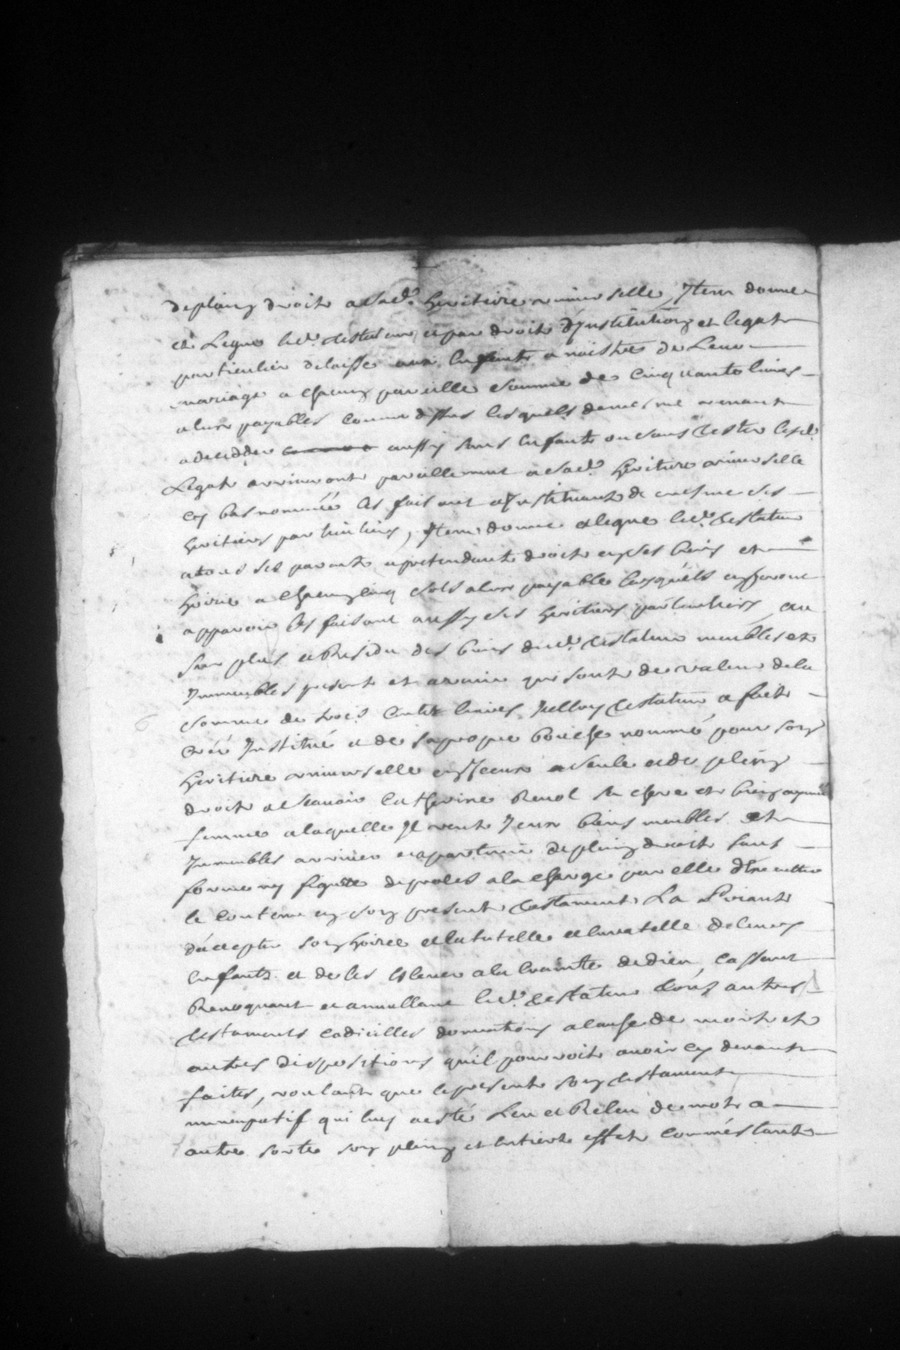 de plaing droit a sad.e heritiere universelle, Item donne
et Legue led. testateur, et par droit d'Institution et legat
particulier delaisse aux Enfants a naistre de Leur
mariage a chacung pareille somme de cinquante livres
a leur payables comme dessus lesquels de mesme venant
a decedder aussy sans Enfants ou sans tester lesd.
Legats arriveront pareillement a sad.e heritiere universelle
cy bas nommée les faisant et Instituant de mesme ses
heritiers particuliers, Item donne a legue led. testateur
a tous ses parents pretendants droit en ses biens et
hoirie a chacung cinq sols a leur payable lorsquels
apparoir les faisant aussy ses heritiers particuliers, au
sur plus et Residu des biens dud. testateur meubles et
Immeubles presents et avenir qui sont de valeur de la
somme de trois cents livres Icelluy testateur a fait
créé Institué et de sa propre bouche nommé pour son
heritiere universelle seule et de pleing
droit a scavoir Catherine Renol sa chere et bien aymée
femme a laquelle Il veut Iceux biens meubles et
Immeubles arriver et apartenir de pleing droit sans
forme ny figure de proces a la charge par elle d'executter
le contenu en son present testament La Priant
d'accepter son hoirie et la tutelle et curatelle de leurs
Enfants et de les Eslever a la crainte de dieu, cassant
Revoquant et annullant led. testateur tous autres
testaments codicilles donnations a cause de mort et
autres dispositions qu'il pourroit avoir cy devant
faites, voulant que le present son testament
nuncupatif qui luy a esté Leu et Releu de mot a
autre sorte son pleing et Entiere effet comme estant